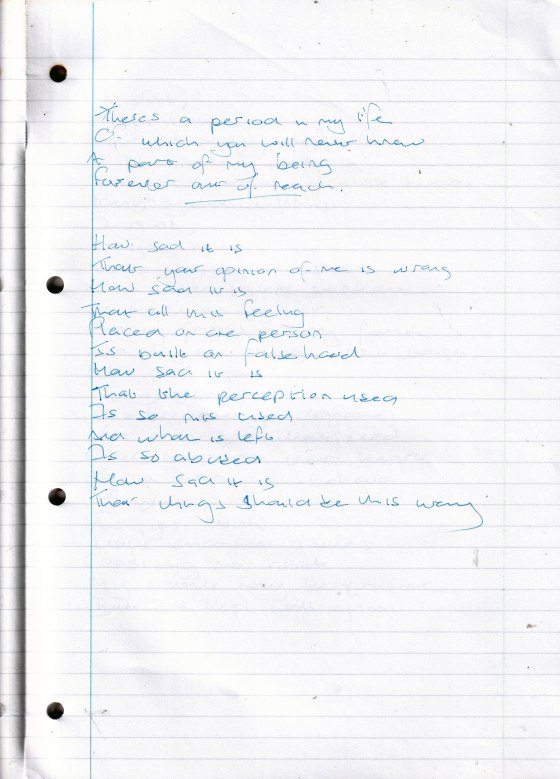 There's a period in my life
Of which you will never know
A part of my being
Forever out of reach.
How sad it is
That your opinion of me is wrong
How sad it is
That all this feeling
Placed on one person
Is built on falsehood
How sad it is
That the perception used
Is so mis used
And what is left
Is so abused
How sad it is
That things should be this wrong